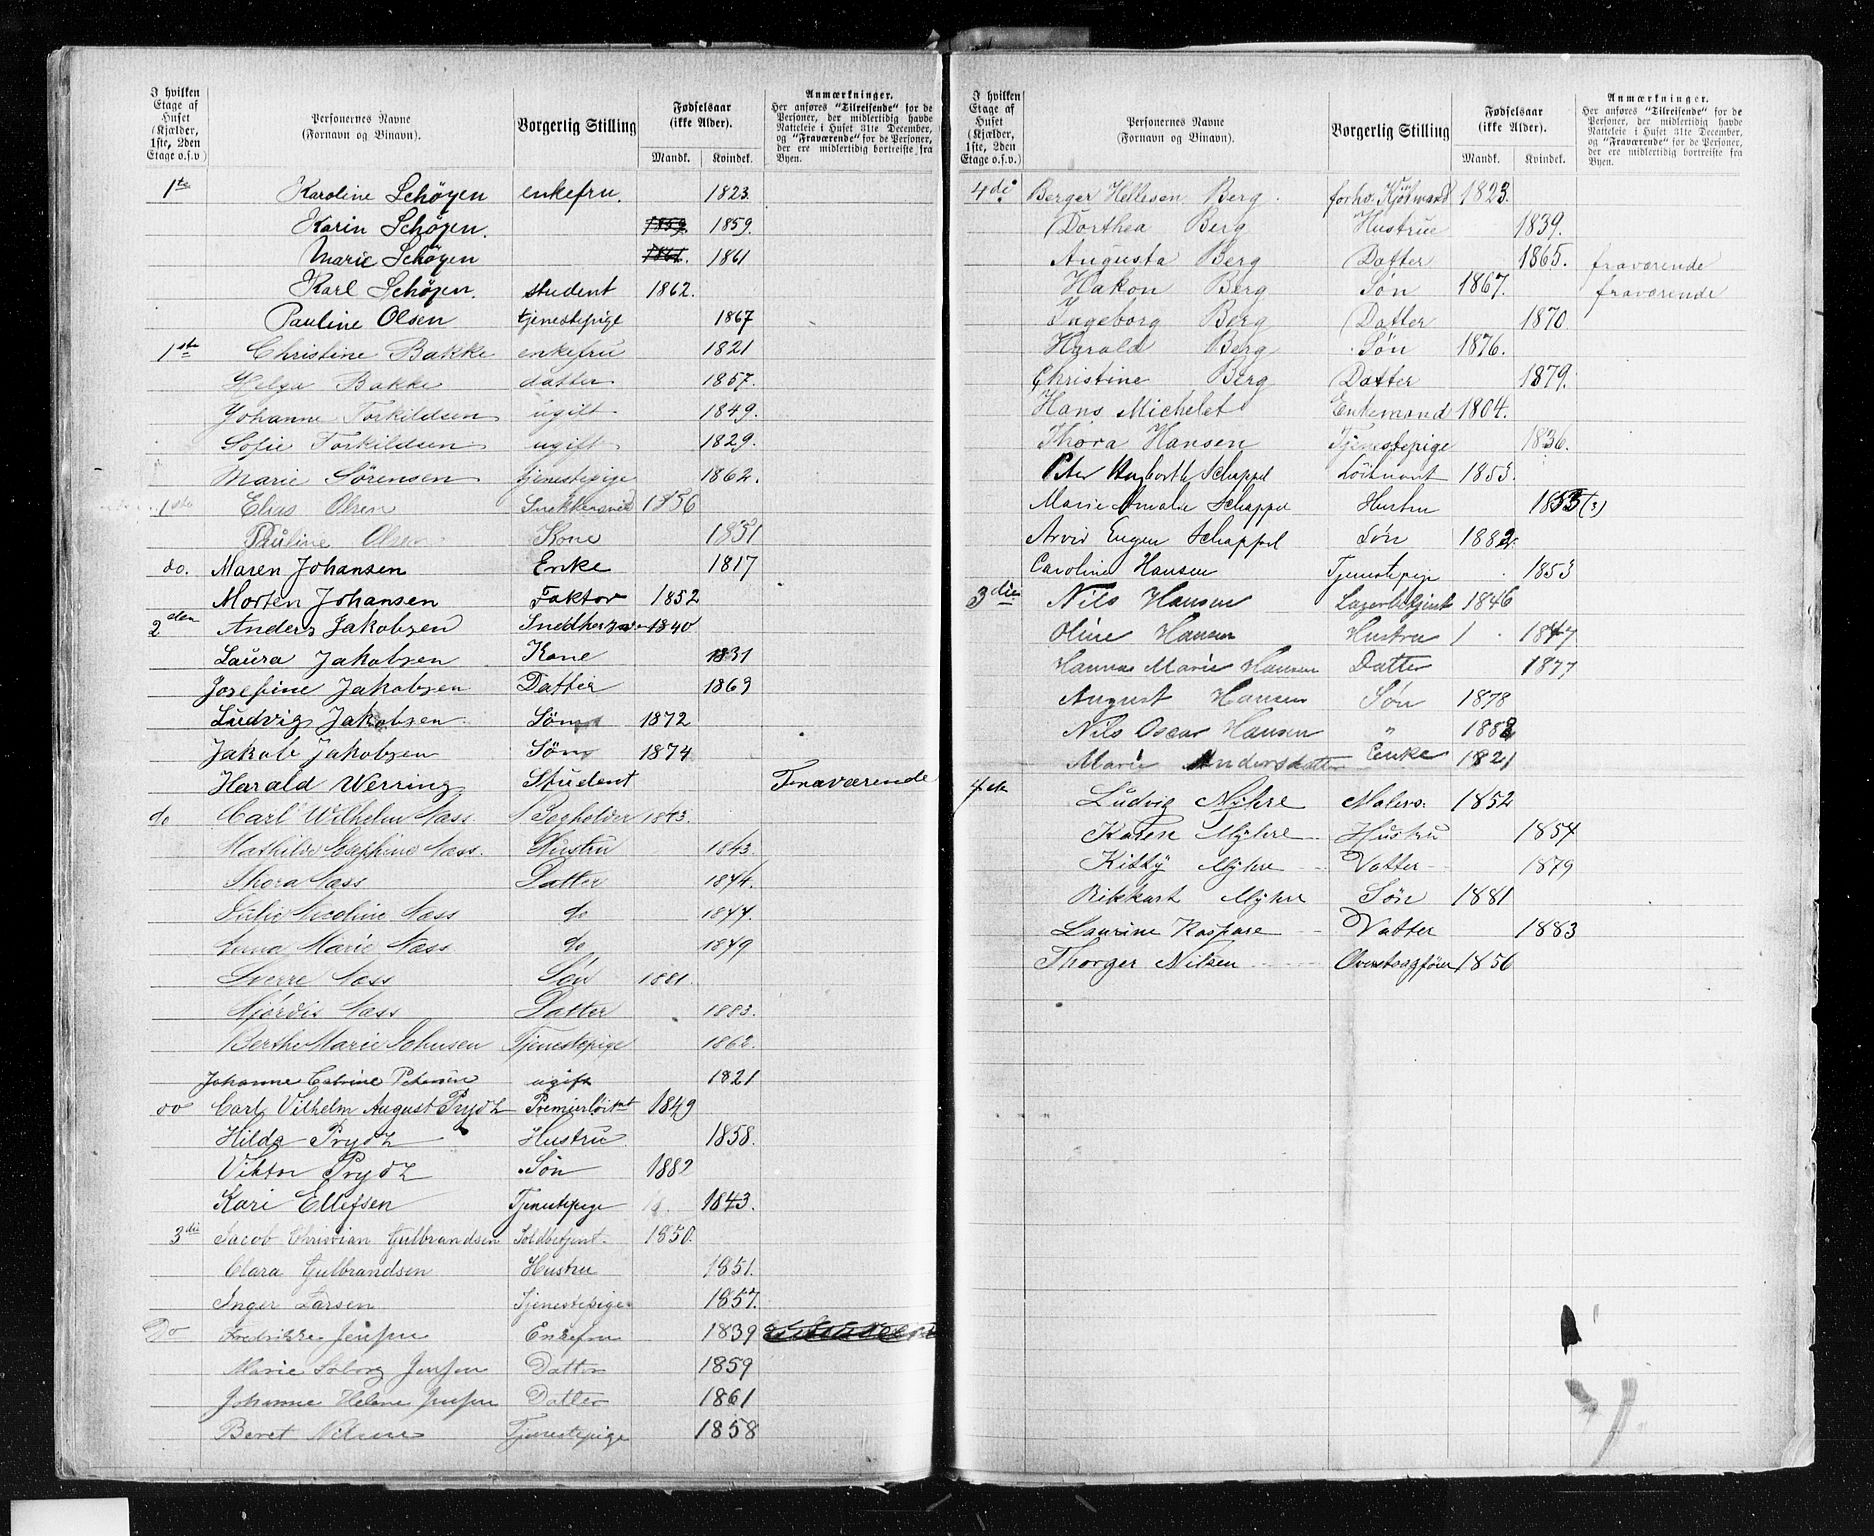 I hvilken Etage af Huset (Kjælder, 1ste, 2den Etage o.s.v.)
Personernes Navne (Fornavn og Binavn).
Borgerlig Stilling
Fødselsaar (ikke Alder).
Mandk. Kvindek.
Anmærkninger.
Her anføres "Tilreisende" for de Personer, der midlertidig havde Natteleie i Huset 31te December, og "Fraværende" for de Personer, der ere midlertidig bortreiste fra Byen.
1ste Karoline Schøyen enkefru. 1823.
Karin Schøyen. 1859 1859.
Marie Schøyen 1861. 1861
Karl Schøyen. student 1862.
Pauline Olsen tjenestepige 1867
1ste Christine Bakke enkefru 1821
Helga Bakke datter 1857.
Johanne Torkildsen ugift 1849.
Sofie Torkildsen ugift 1829.
Marie Sørensen tjenestepige 1862.
1ste Olsen 1856
Pauline Olsen Kone 1831
do. Maren Johansen Enke 1817
Morten Johansen Faktor 1852
2den Anders Jakobsen 1840
Laura Jakobsen Kone 1831
Josefine Jakobsen Datter 1863
Ludvig Jakobsen Søn 1872
Jakob Jakobsen Søn 1874
Harald Werring Student Fraværende
do Carl Wilhelm Næss Bogholder 1843.
Mathilde Josephine Næss. Hustru 1843.
Thora Næss Datter 1874.
Julie Nicoline Næss do 1877.
Anna Marie Næss do 1879
Sverre Næss Søn 1881.
Hjørdis Næss Datter 1883.
Berthe Marie Johnsen Tjenestepige 1862.
Johanne Catrine Petersen ugift 1821
do Carl Vilhelm August Prydz Premierløitnt 1849
Hilda Prydz Hustru 1858.
Viktor Prydz Søn 1882
Kari Ellefsen Tjenestepige 1843.
3die Jacob Christian Gulbrandsen Toldbetjent. 1850.
Clara Gulbrandsen Hustru 1851.
Inger Larsen Tjenestepige 1857.
Do Fredrikke Jensen Enkefru 1839
Marie Jensen Datter 1859
Johanne Helene Jensen Datter 1861
Beret Nilsen Tjenestepige 1858
I hvilken Etage af Huset (Kjælder, 1ste, 2den Etage o.s.v.)
Personernes Navne (Fornavn og Binavn).
Borgerlig Stilling
Fødselsaar (ikke Alder).
Mandk. Kvindek.
Anmærkninger.
Her anføres "Tilreisende" for de Personer, der midlertidig havde Natteleie i Huset 31te December, og "Fraværende" for de Personer, der ere midlertidig bortreiste fra Byen.
4de Berger Hellesen Berg. forhv. Kjøbmand 1823.
Dorthea Berg Hustrue 1839.
Augusta Berg Datter 1865. fraværende
Hakon Berg Søn 1867. fraværende
Ingeborg Berg Datter 1870
Harald Berg Søn 1876.
Christine Berg Datter 1879.
Hans Michelet Enkemand 1804.
Thora Hansen Tjenestepige 1836.
Peter Schappel Løitnant 1853.
Marie Amalie Schappel Hustru 1853 (?)
Arvid Eugen Schappel Søn 1882.
Caroline Hansen Tjenestepige 1853
3die Nils Hansen Lagerbetjent 1846
Oline Hansen Hustru 1847
Hanna Marie Hansen Datter 1877
August Hansen Søn 1878
Nils Oscar Hansen " 1882
Marie Andersdatter Enke 1821
4de Ludvig Myhre Malers. 1852
Karen Myhre Hustru 1854
Kitty Myhre Datter 1879
Rikkart Myhre Søn 1881
Laurine Kaspare Datter 1883
Thorger Nilsen 1856